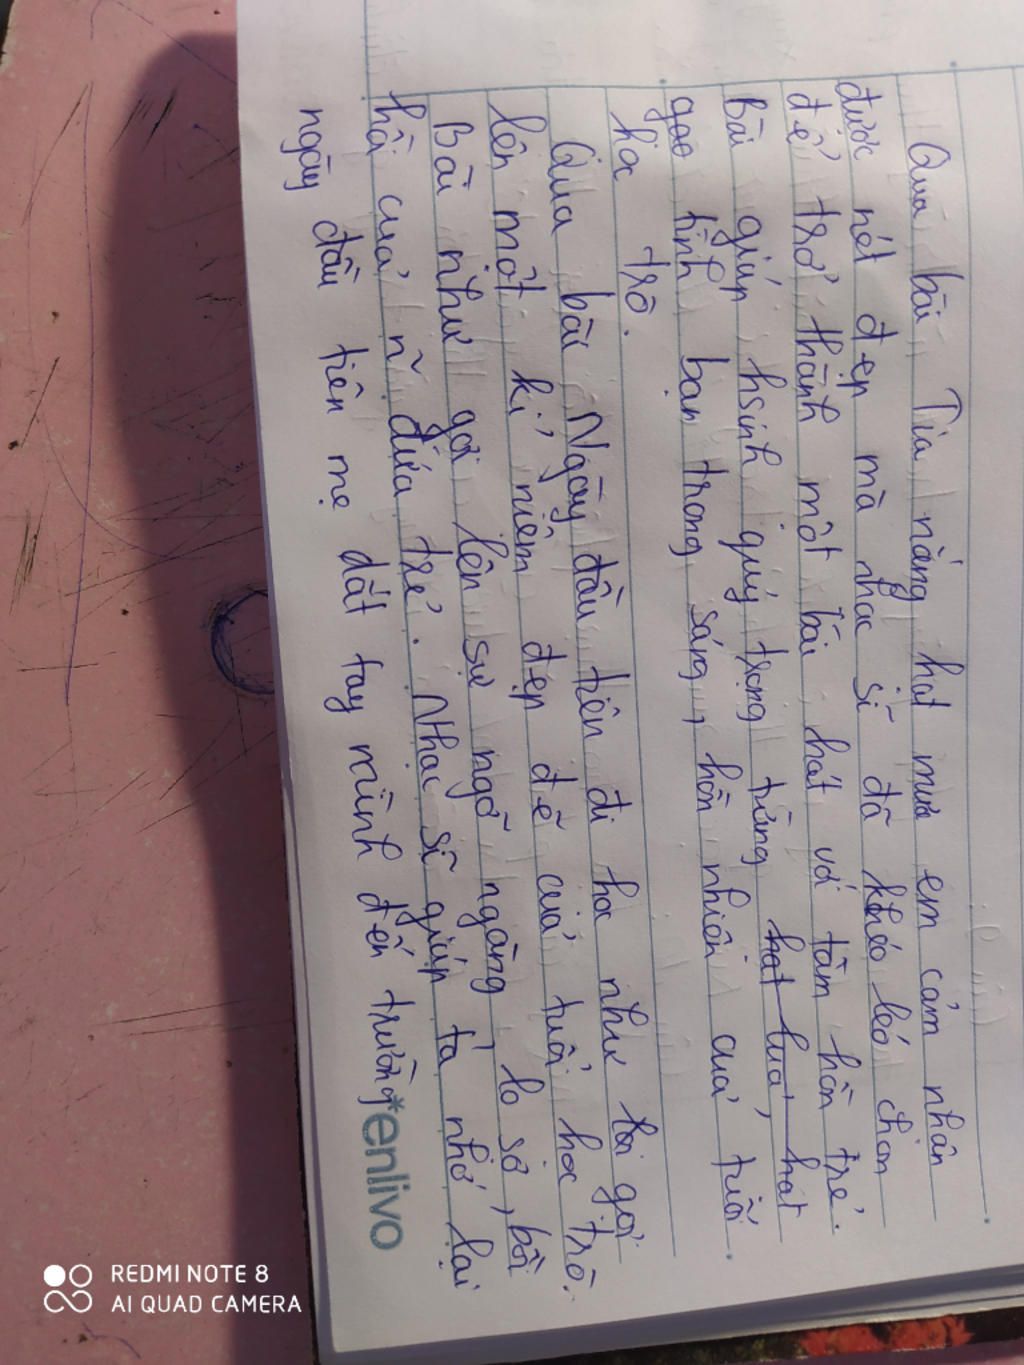 Qua bài Tia nắng hạt mưa em cảm nhân
được nét đẹp mà nhạc sĩ đã khéo léo chọn
để trở thành một bài hát với tâm hồn trẻ.
Bài giúp hsinh quý trọng từng hạt lúa, hạt
gạo tình bạn trong sáng, hồn nhiên của tuổi
học trò.
Qua bài Ngày đầu tiên đi học như lại gợi
lên một kỉ niệm đẹp đẽ của tuổi học trò.
Bài như gợi lên sự ngỡ ngàng, lo sợ, bồi
hồi của n~ đứa trẻ. Nhạc sĩ giúp ta nhớ lại
ngày đầu tiên mẹ dắt tay mình đến trường
*enlivo
REDMI NOTE 8
AI QUAD CAMERA